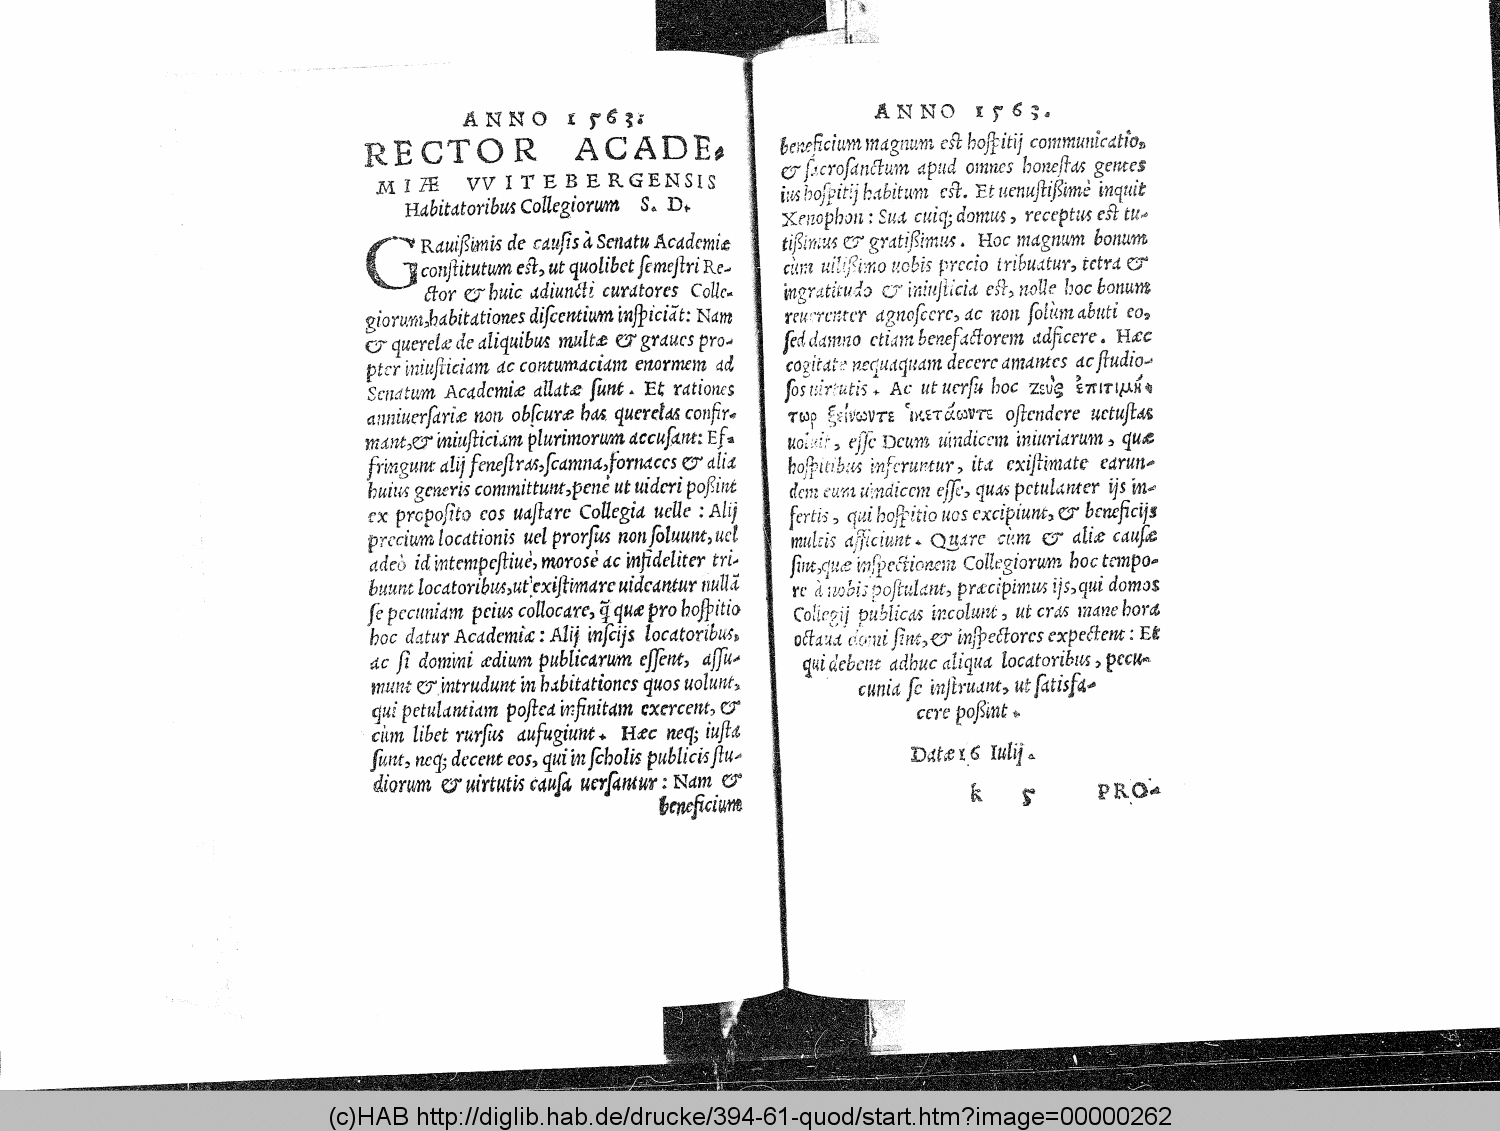 ANNO 1563.
RECTOR ACADE,
MIÆ VVITEBERGENSIS
Habitatoribus Collegiorum S. D.
GRauißimis de causis à Senatu Academiæ
constitutum est, ut quolibet semestri Re-
ctor & huic adiuncti curatores Colle-
giorum, habitationes discentium inspiciāt: Nam
& querelæ de aliquibus multæ & graues pro-
pter iniusticiam ac contumaciam enormem ad
Senatum Academiæ allatæ sunt. Et rationes
anniuersariæ non obscuræ has querelas confir-
mant, & iniusticiam plurimorum accusant: Ef-
fringunt alij fenestras, scamna, fornaces & alia
huius generis committunt, penè ut uideri poßint
ex proposito eos uastare Collegia uelle : Alij
precium locationis uel prorsus non soluunt, uel
adeò id intempestiuè, morosè ac infideliter tri-
buunt locatoribus, ut existimare uideantur nullā
se pecuniam peius collocare, q̃ quæ pro hospitio
hoc datur Academiæ : Alij inscijs locatoribus,
ac si domini ædium publicarum essent, assu-
munt & intrudunt in habitationes quos uolunt,
qui petulantiam postea infinitam exercent, &
cùm libet rursus aufugiunt. Hæc neq; iusta
sunt, neq; decent eos, qui in scholis publicis stu-
diorum & uirtutis causa uersantur : Nam &
beneficium
ANNO 1563.
beneficium magnum est hospitij communicatio,
& sacrosanctum apud omnes honestas gentes
ius hospitij habitum est. Et uenustißimè inquit
Xenophon : Sua cuiq; domus, receptus est tu-
tißimus & gratißimus. Hoc magnum bonum
cùm uilißimo uobis precio tribuatur, tetra &
ingratitudo & iniusticia est, nolle hoc bonum
reuerenter agnoscere, ac non solùm abuti eo,
sed damno etiam benefactorem adficere. Hæc
cogitate nequaquam decere amantes ac studio-
sos uirtutis. Ac ut uersu hoc Ζεὺς ἐπιτιμή-
τωρ ξείνωντε ἱκετάωντε ostendere uetustas
uoluit, esse Deum uindicem iniuriarum, quæ
hospitibus inferuntur, ita existimate earun-
dem eum uindicem esse, quas petulanter ijs in-
fertis, qui hospitio uos excipiunt, & beneficijs
multis afficiunt. Quare cùm & aliæ causæ
sint, quæ inspectionem Collegiorum hoc tempo-
re à nobis postulant, præcipimus ijs, qui domos
Collegij publicas incolunt, ut cras mane hora
octaua domi sint, & inspectores expectent : Et
qui debent adhuc aliqua locatoribus, pecu-
cunia se instruant, ut satisfa-
cere poßint.
Datæ 16 Iulij.
k 5 PRO-
(c)HAB http://diglib.hab.de/drucke/394-61-quod/start.htm?image=00000262